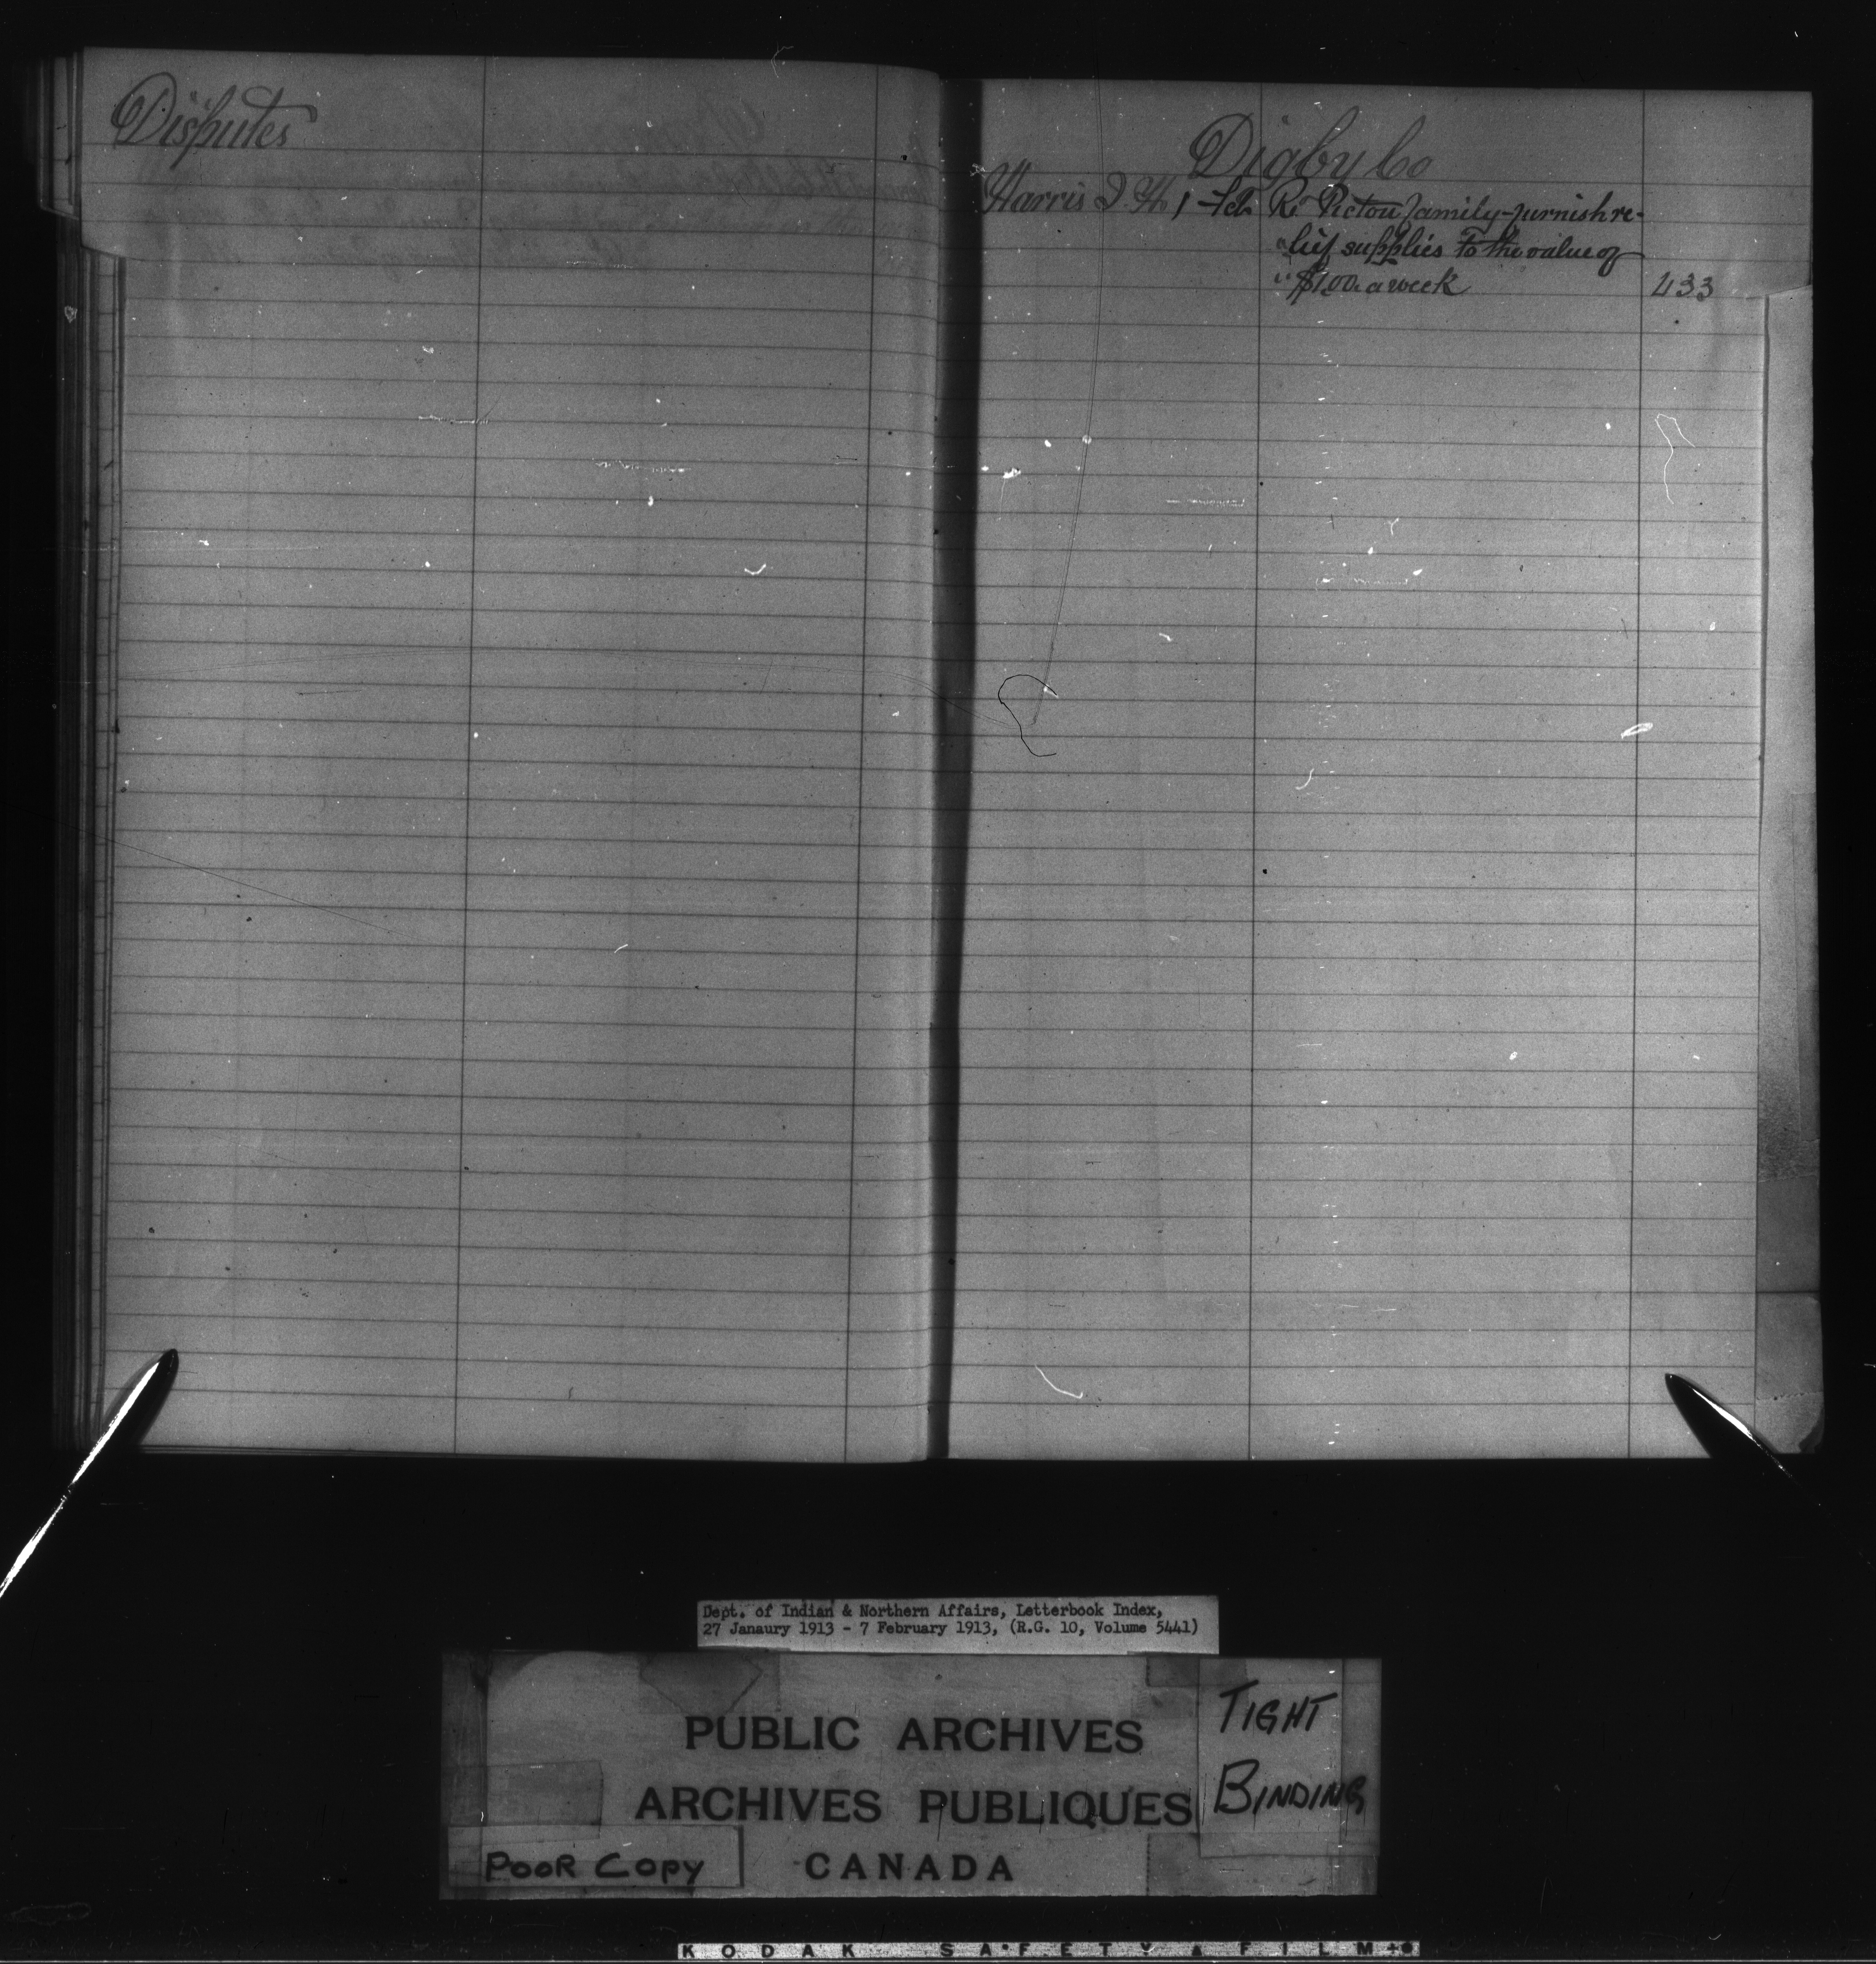 Disputes
Digby Co
Harris J. H. 1 Feb Re Pictou family-furnish re-
" lief supplies to the value of
" $1.00 a week 433
Dept. of Indian & Northern Affairs, Letterbook Index,
27 Janaury 1913 - 7 February 1913, (R.G. 10, Volume 5441)
PUBLIC ARCHIVES
ARCHIVES PUBLIQUES
CANADA
TIGHT
BINDING
POOR COPY
KODAK SAFETY FILM